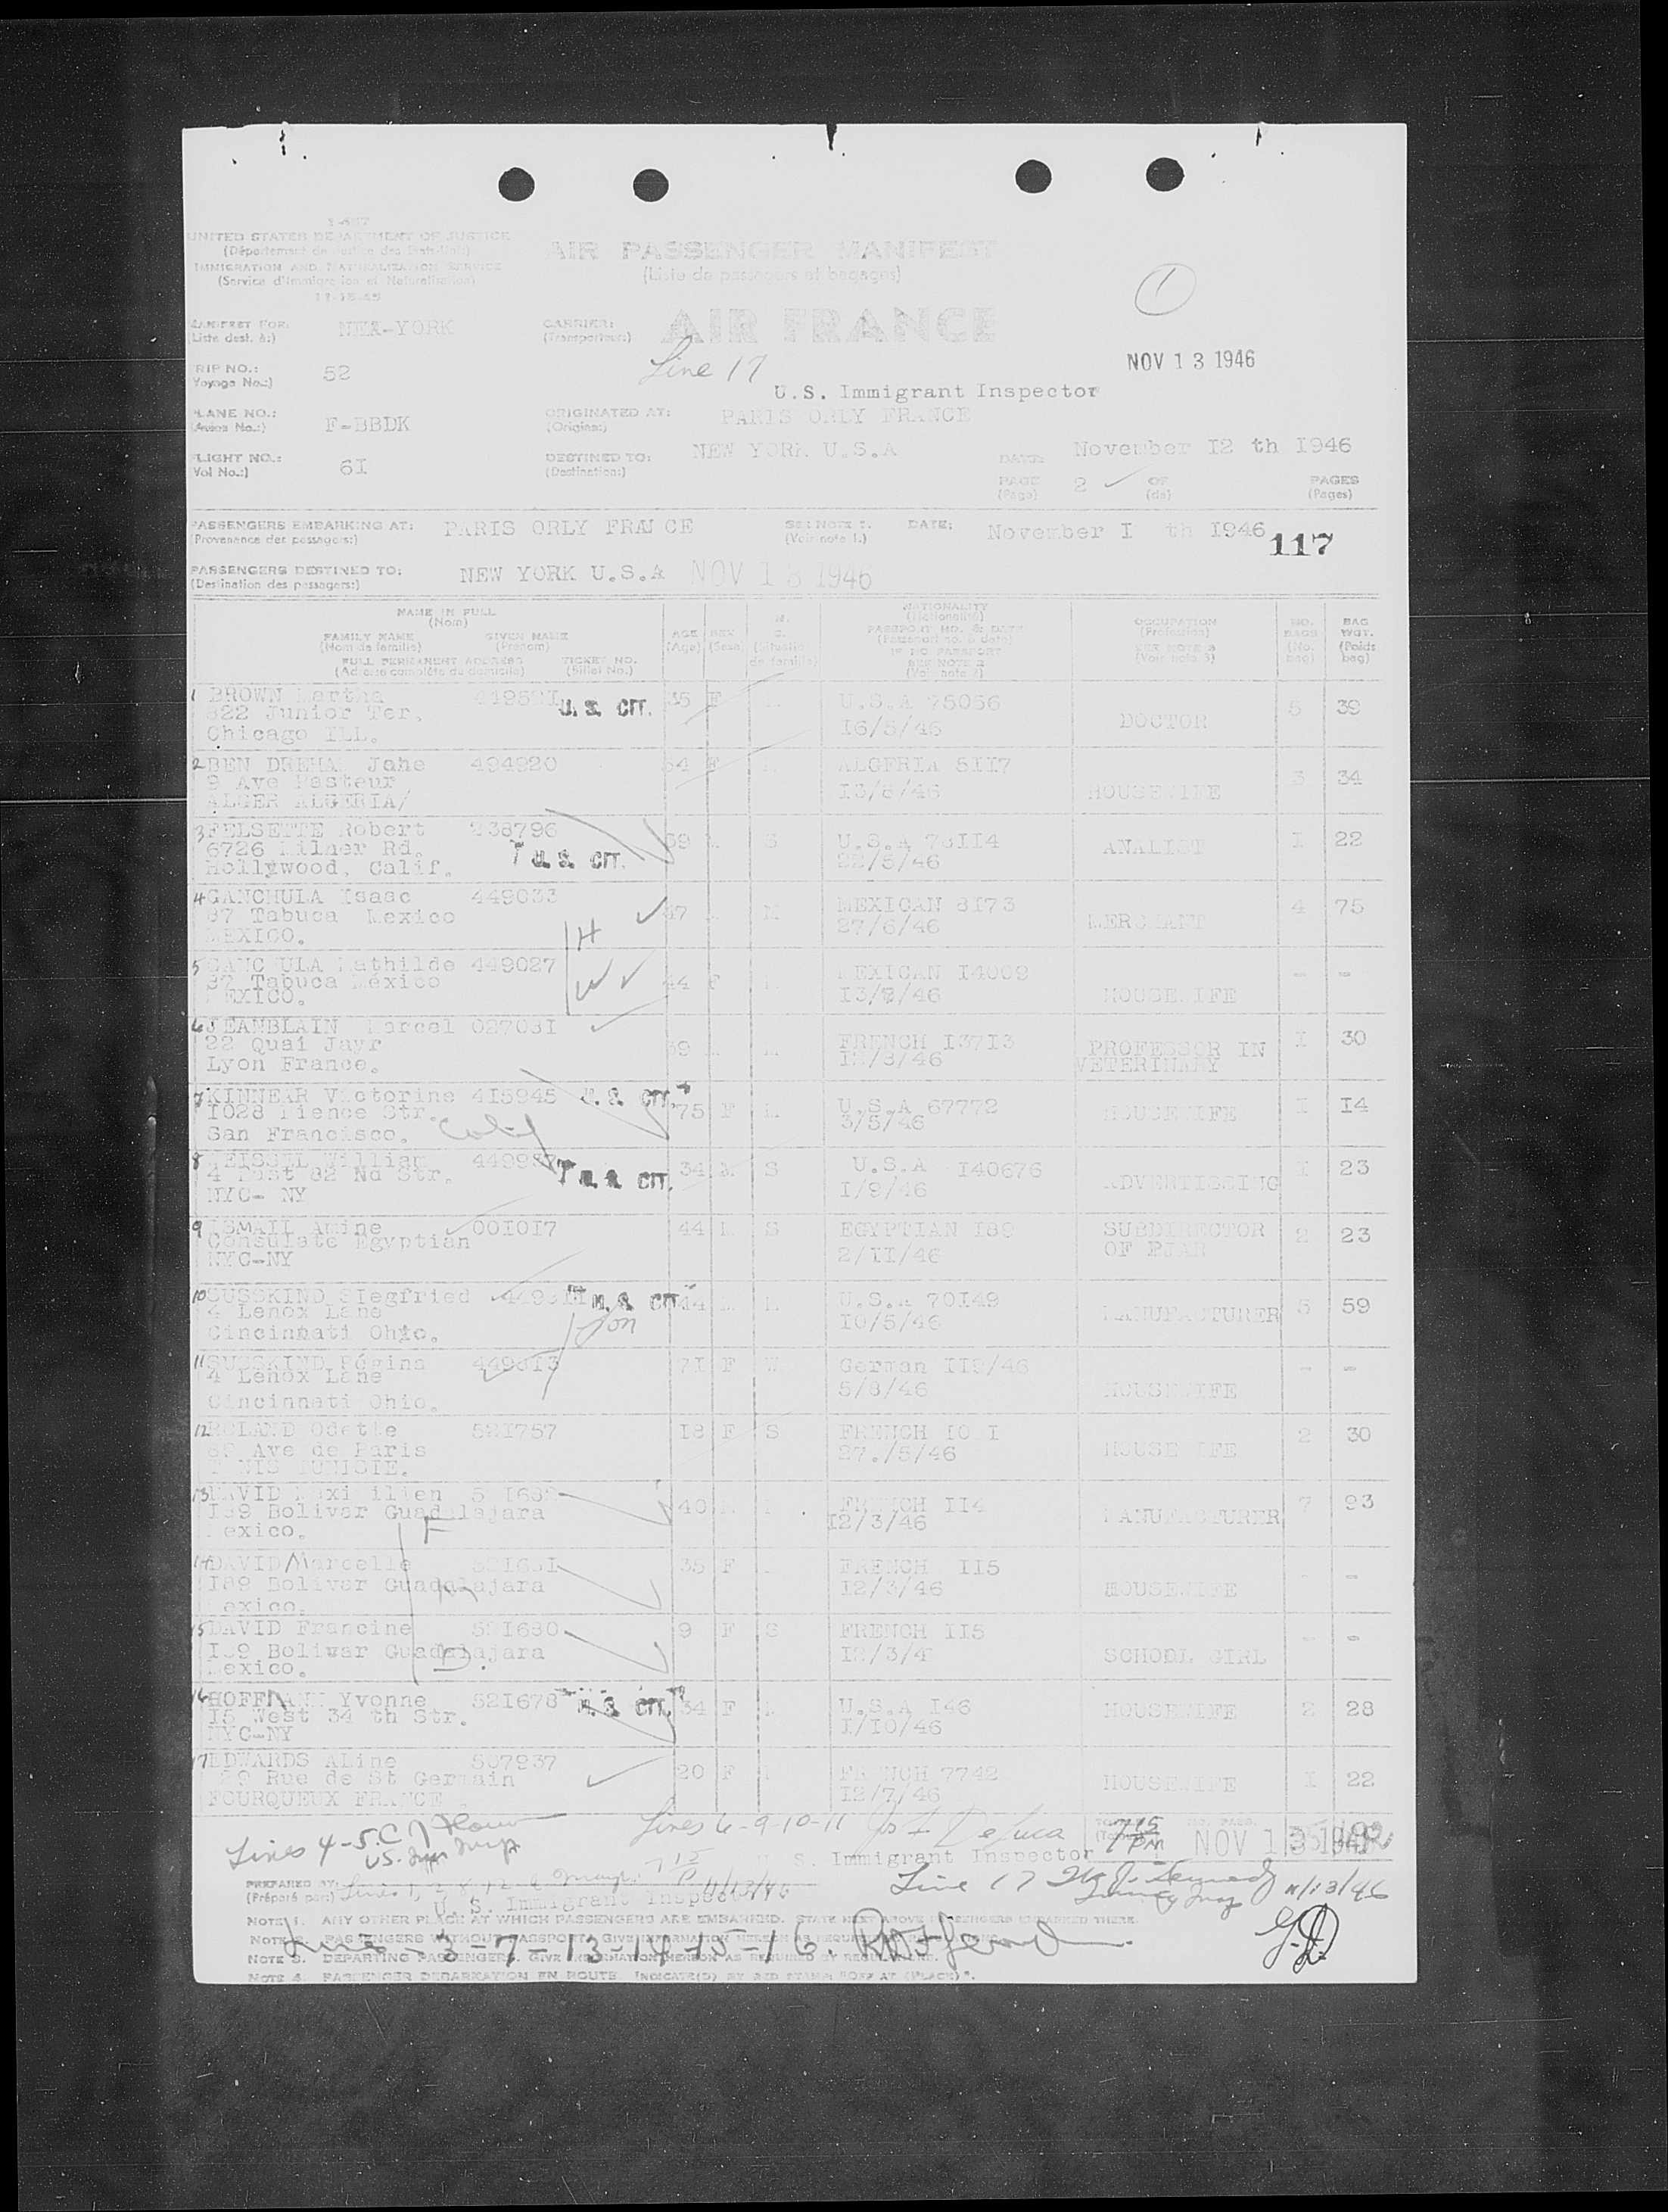 UNITED STATES DEPARTMENT OF JUSTICE
IMMIGRATION AND NATURALIZATION SERVICE
(Service d'Immigration et Naturalisation)
11-15-45
AIR PASSENGER MANIFEST
(Liste de passagers et bagages)
1
MANIFEST FOR: NEW-YORK
(Liste dest. à:)
CARRIER: AIR FRANCE
(Transporteur:)
Line 17
NOV 13 1946
TRIP NO.: 52
Voyage No.:)
U.S. Immigrant Inspector
PLANE NO.: F-BBDK
(Avion No.:)
ORIGINATED AT: PARIS ORLY FRANCE
(Origine:)
FLIGHT NO.: 6I
Vol No.:)
DESTINED TO: NEW YORK U.S.A
(Destination:)
DATE: November I2 th I946
PAGE 2 OF PAGES
(Page) (de) (Pages)
PASSENGERS EMBARKING AT: PARIS ORLY FRANCE
(Provenance des passagers:)
SEE NOTE 1. DATE: November I th I946
(Voir note 1.)
117
PASSENGERS DESTINED TO: NEW YORK U.S.A NOV 13 1946
(Destination des passagers:)
NAME IN FULL
(Nom)
FAMILY NAME GIVEN NAME
(Nom de famille) (Prénom)
FULL PERMANENT ADDRESS TICKET NO.
(Adresse complète du domicile) (Billet No.)
AGE
(Age)
SEX
(Sexe)
NATIONALITY
(Nationalité)
PASSPORT NO. & DATE
(Passeport no. & date)
IF NO PASSPORT
SEE NOTE 2
(Voir note 2)
OCCUPATION
(Profession)
SEE NOTE 3
(Voir note 3)
NO. BAGS
(No. bag)
BAG WGT.
(Poids bag)
1 BROWN Martha U.S. CIT. 35 F U.S.A 75056 5 39
822 Junior Ter. DOCTOR
Chicago ILL. I6/5/46
2 BEN Jahe 494920 54 F ALGERIA 5II7 3 34
9 Ave Pasteur HOUSEWIFE
ALGER ALGERIA/ I3/8/46
3 FELSETTE Robert 238796 S U.S.A 76II4 I 22
6726 Milner Rd. U.S. CIT. ANALIST
Hollywood, Calif. 22/5/46
4 GANCHULA Isaac 449033 47 M MEXICAN 8I73 4 75
87 Tabuca Mexico H MERCHANT
MEXICO. 27/6/46
5 GANCHULA Mathilde 449027 44 F MEXICAN I4009 - -
87 Tabuca Mexico W HOUSEWIFE
MEXICO. I3/8/46
6 JEANBLAIN Marcel 02703I FRENCH I37I3 I 30
22 Quai Jayr PROFESSOR IN
Lyon France. VETERINARY
7 KINNEAR Victorine 4I5945 U.S. CIT. 75 F U.S.A 67772 I I4
I028 Str. 3/5/46 HOUSEWIFE
San Francisco. Calif
8 MEISSEL William U.S. CIT. 34 M S U.S.A I40676 I 23
4 East 82 Nd Str. ADVERTISSING
NYC- NY I/9/46
9 ISMAIL Amine 00I0I7 44 M S EGYPTIAN I89 2 23
Consulate Egyptian SUBDIRECTOR
NYC-NY 2/II/46
10 SUSSKIND SIegfried U.S. CIT. 44 M M U.S.A 70I49 5 59
4 Lenox Lane Son MANUFACTURER
Cincinnati Ohio. I0/5/46
11 SUSSKIND Régina 4490I3 7I F W German II9/46 - -
4 Lenox Lane 5/8/46 HOUSEWIFE
Cincinnati Ohio.
12 ROLAND Odette 52I757 I8 F S FRENCH 2 30
Ave de Paris 27./5/46 HOUSEWIFE
TUNIS TUNISIE.
13 DAVID Maximilien 40 M FRENCH II4 7 93
I89 Bolivar Guadalajara F I2/3/46 MANUFACTURER
Mexico.
14 DAVID Marcelle 52I63I 35 F FRENCH II5 - -
I89 Bolivar Guadalajara M I2/3/46 HOUSEWIFE
Mexico.
15 DAVID Francine 52I630 9 F S FRENCH II5 - -
I89 Bolivar Guadalajara D. SCHOOL GIRL
Mexico.
16 HOFFMANN Yvonne 52I678 U.S. CIT. 34 F U.S.A I46 2 28
I5 West 34 th Str. HOUSEWIFE
NYC-NY I/I0/46
17 EDWARDS ALine 507937 20 F FRENCH 7742 I 22
Rue de St Germain HOUSEWIFE
FOURQUEUX FRANCE I2/7/46
Lines 4-5
US. Imm Insp
Lines 6-9-10-11 De Luca
U.S. Immigrant Inspector
7 15 PM
NOV 13 1946
PREPARED BY:
(Préparé par:)
11/13/46
U.S. Immigrant Inspector
Line 17 11/13/46
NOTE 1. ANY OTHER PLACE AT WHICH PASSENGERS ARE EMBARKED. STATE NEXT ABOVE PASSENGERS EMBARKED THERE.
Lines 3-7-13-14-15-16.
NOTE 4. PASSENGER DEBARKATION EN ROUTE INDICATE(D) BY RED STAMP "OFF AT (PLACE)".